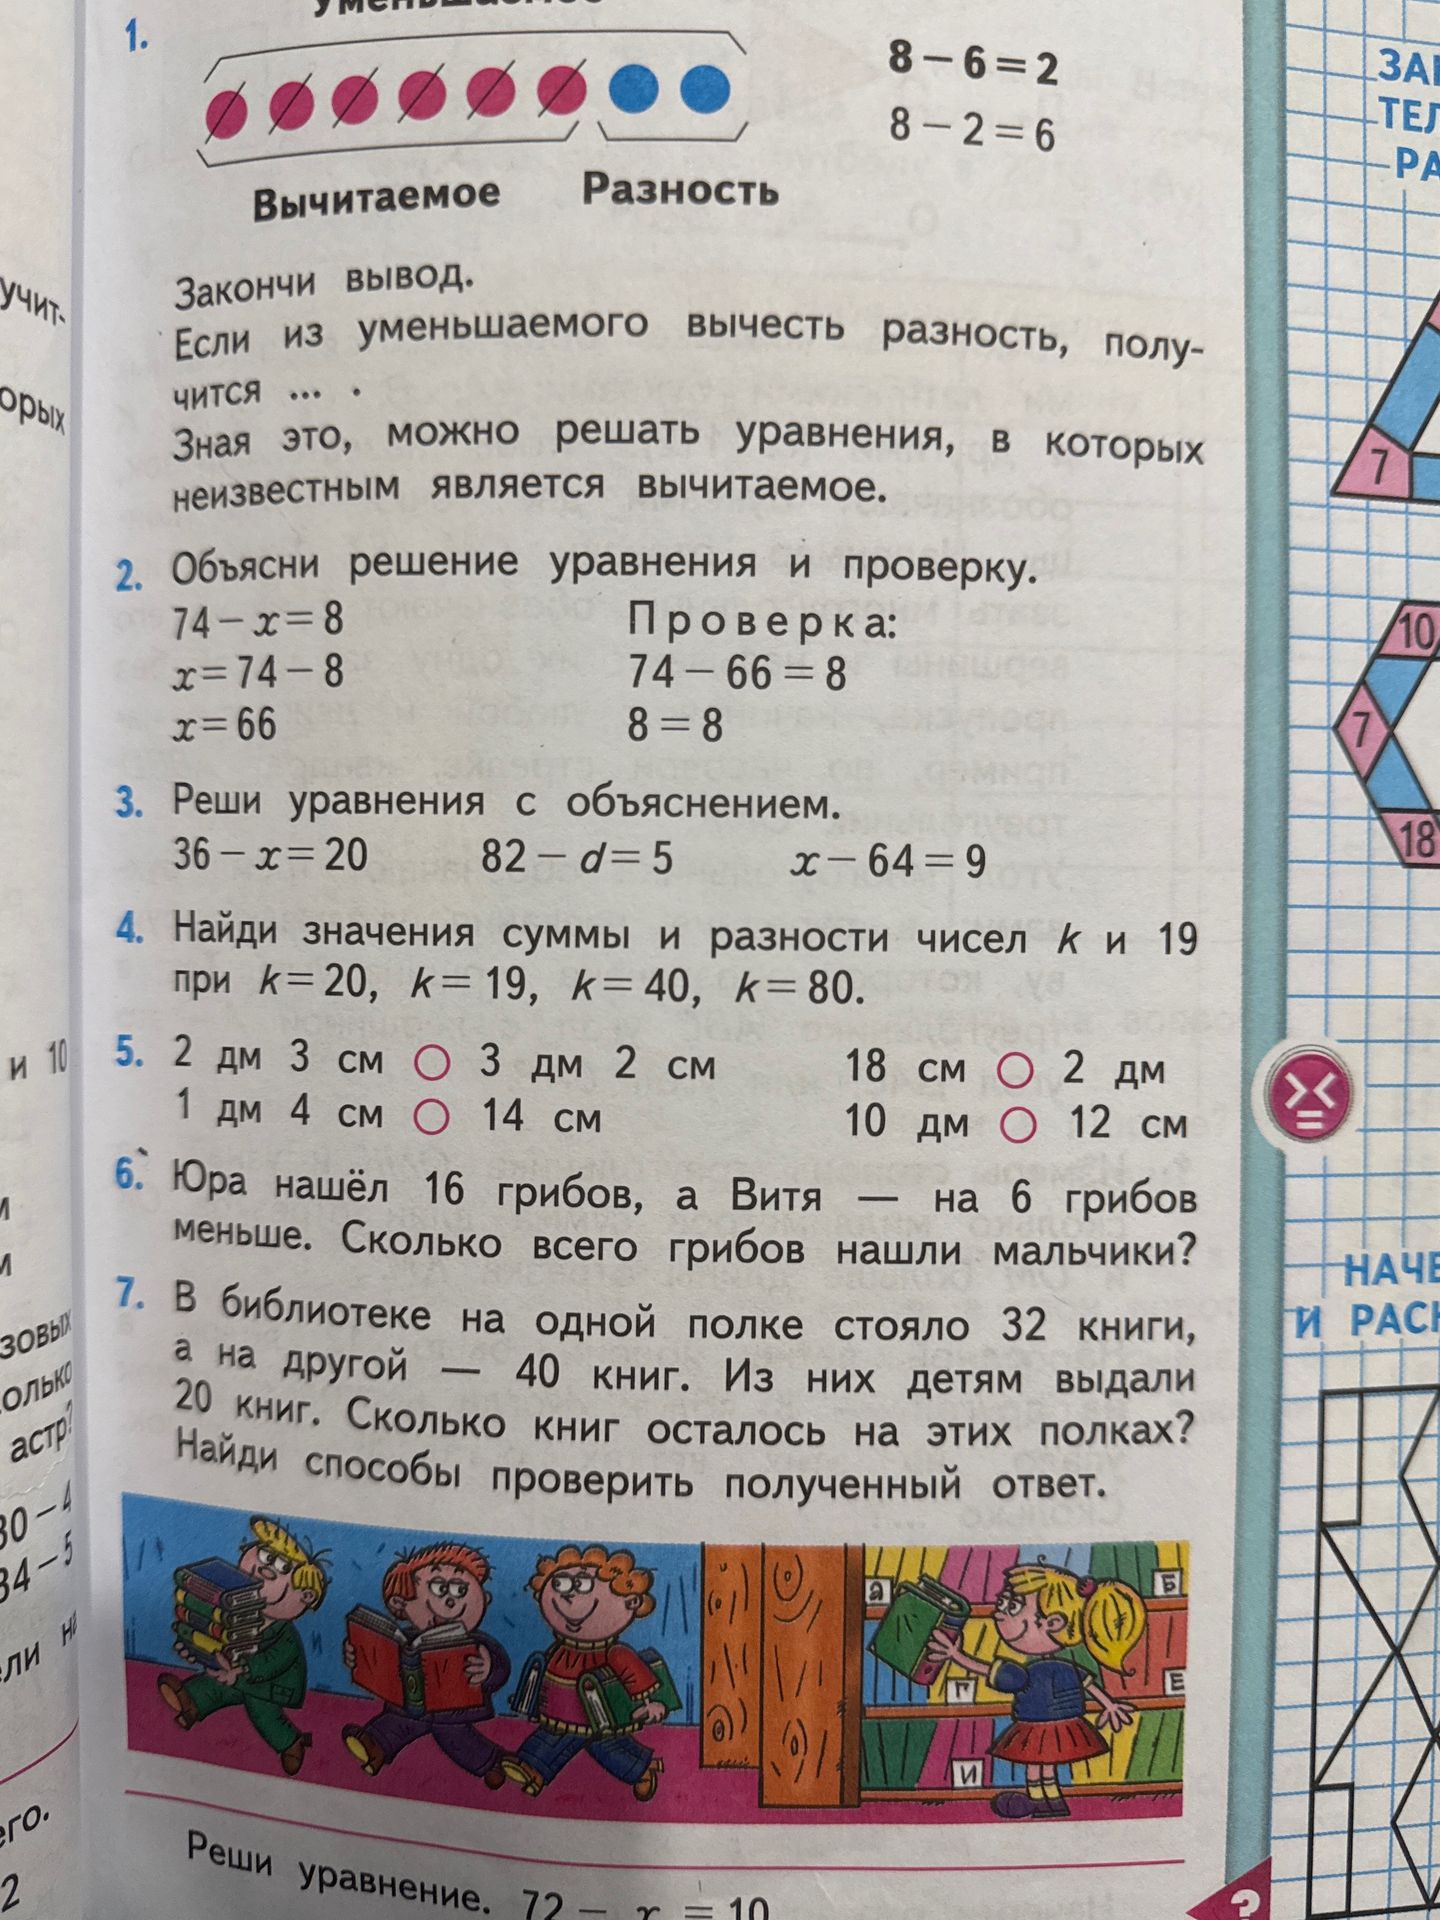 1.
8 − 6 = 2
8 − 2 = 6
Вычитаемое Разность
Закончи вывод.
Если из уменьшаемого вычесть разность, полу-
чится ... .
Зная это, можно решать уравнения, в которых
неизвестным является вычитаемое.
2. Объясни решение уравнения и проверку.
74 − x = 8 Проверка:
x = 74 − 8 74 − 66 = 8
x = 66 8 = 8
3. Реши уравнения с объяснением.
36 − x = 20 82 − d = 5 x − 64 = 9
4. Найди значения суммы и разности чисел k и 19
при k = 20, k = 19, k = 40, k = 80.
5. 2 дм 3 см ○ 3 дм 2 см 18 см ○ 2 дм
1 дм 4 см ○ 14 см 10 дм ○ 12 см
6. Юра нашёл 16 грибов, а Витя — на 6 грибов
меньше. Сколько всего грибов нашли мальчики?
7. В библиотеке на одной полке стояло 32 книги,
а на другой — 40 книг. Из них детям выдали
20 книг. Сколько книг осталось на этих полках?
Найди способы проверить полученный ответ.
а Б
Г Е
И
Реши уравнение. 72 − x = 10
?
и 10
астр?
7
10
7
18
> <
=
И